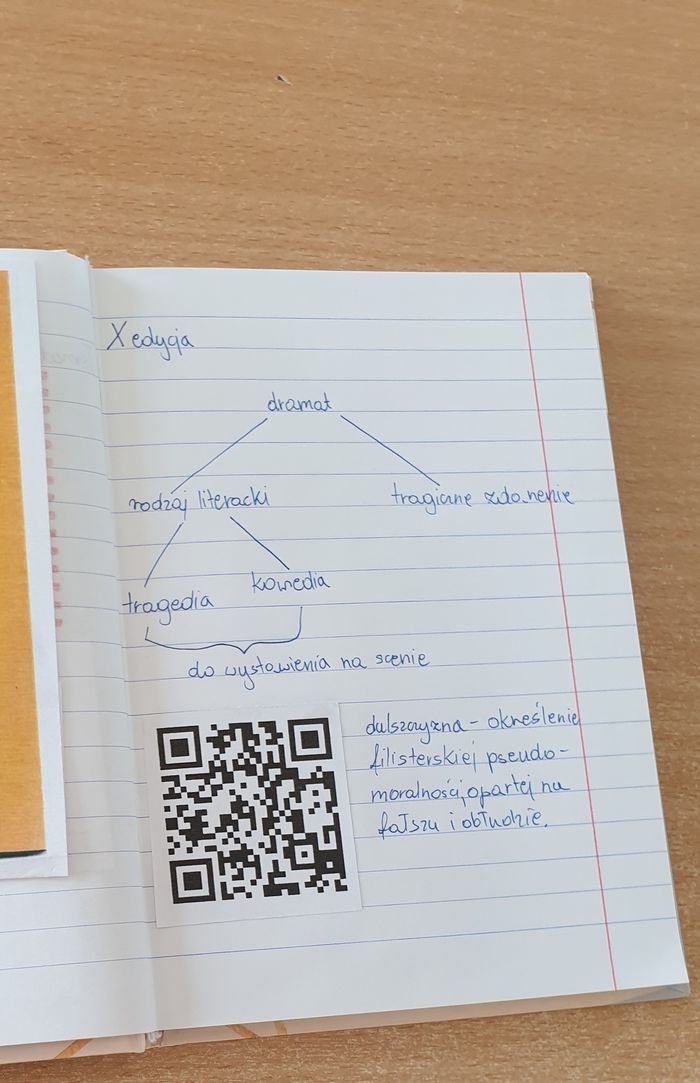 X edycja
dramat
rodzaj literacki tragiczne zdarzenie
tragedia komedia
do wystawienia na scenie
dulszczyzna - określenie
filisterskiej pseudo-
moralności, opartej na
fałszu i obłudzie.